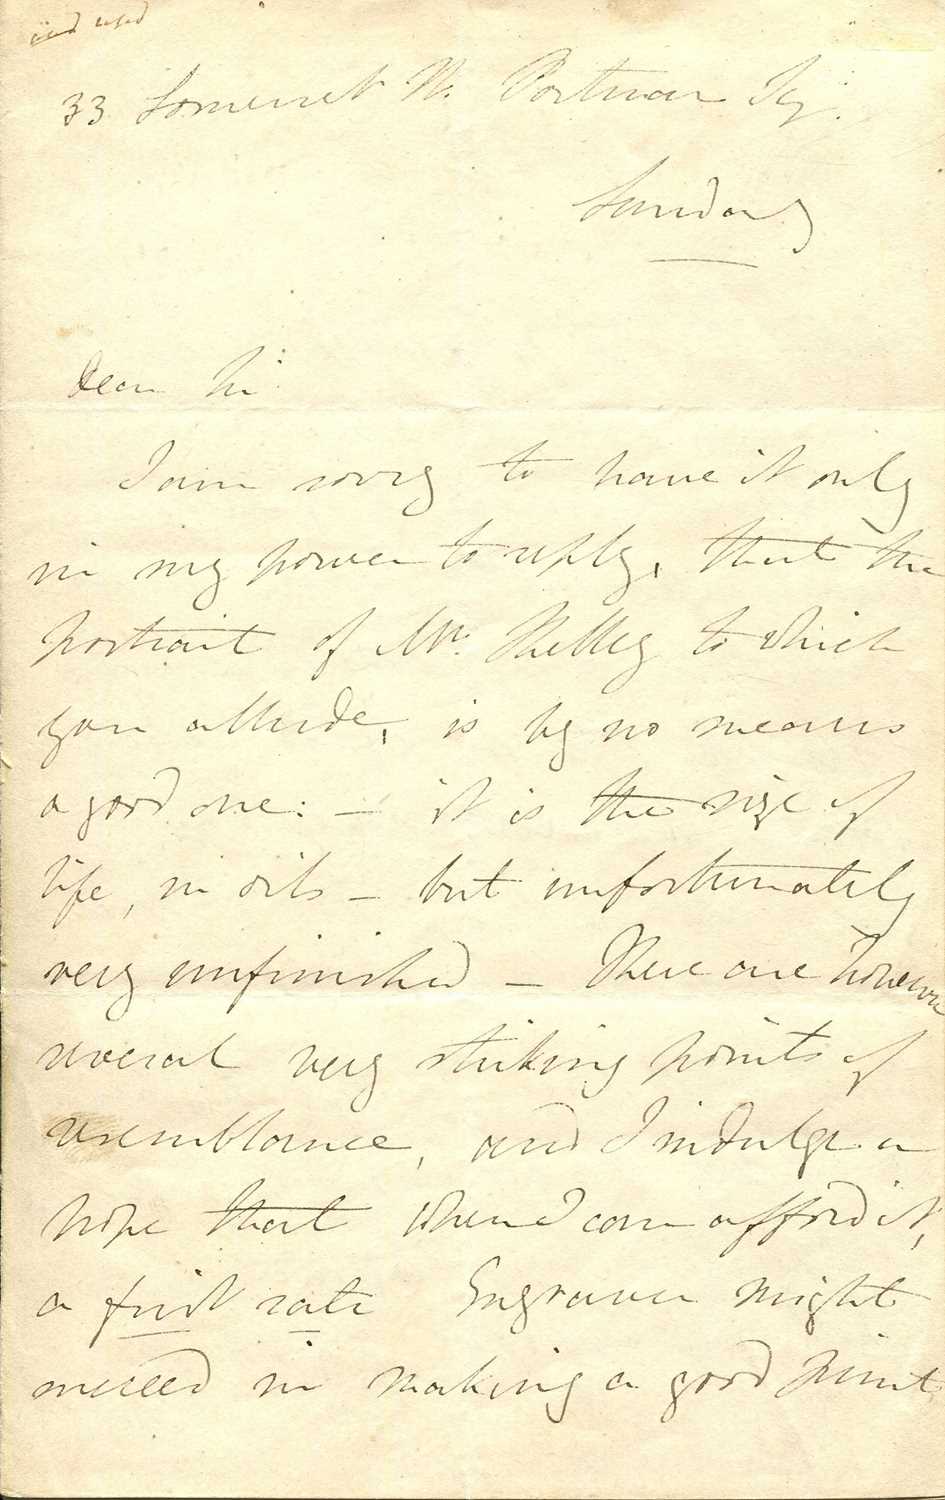 and used
33 Somerset St. Portman Sq.
Sunday
Dear Sir
I am sorry to have it only
in my power to reply, that the
portrait of Mr. Shelley to which
you allude, is by no means
a good one: – it is the size of
life, in oils – but unfortunately
very unfinished – There are however
several very striking points of
resemblance, and I indulge a
hope that when I can afford it,
a first rate Engraver might
succeed in making a good print